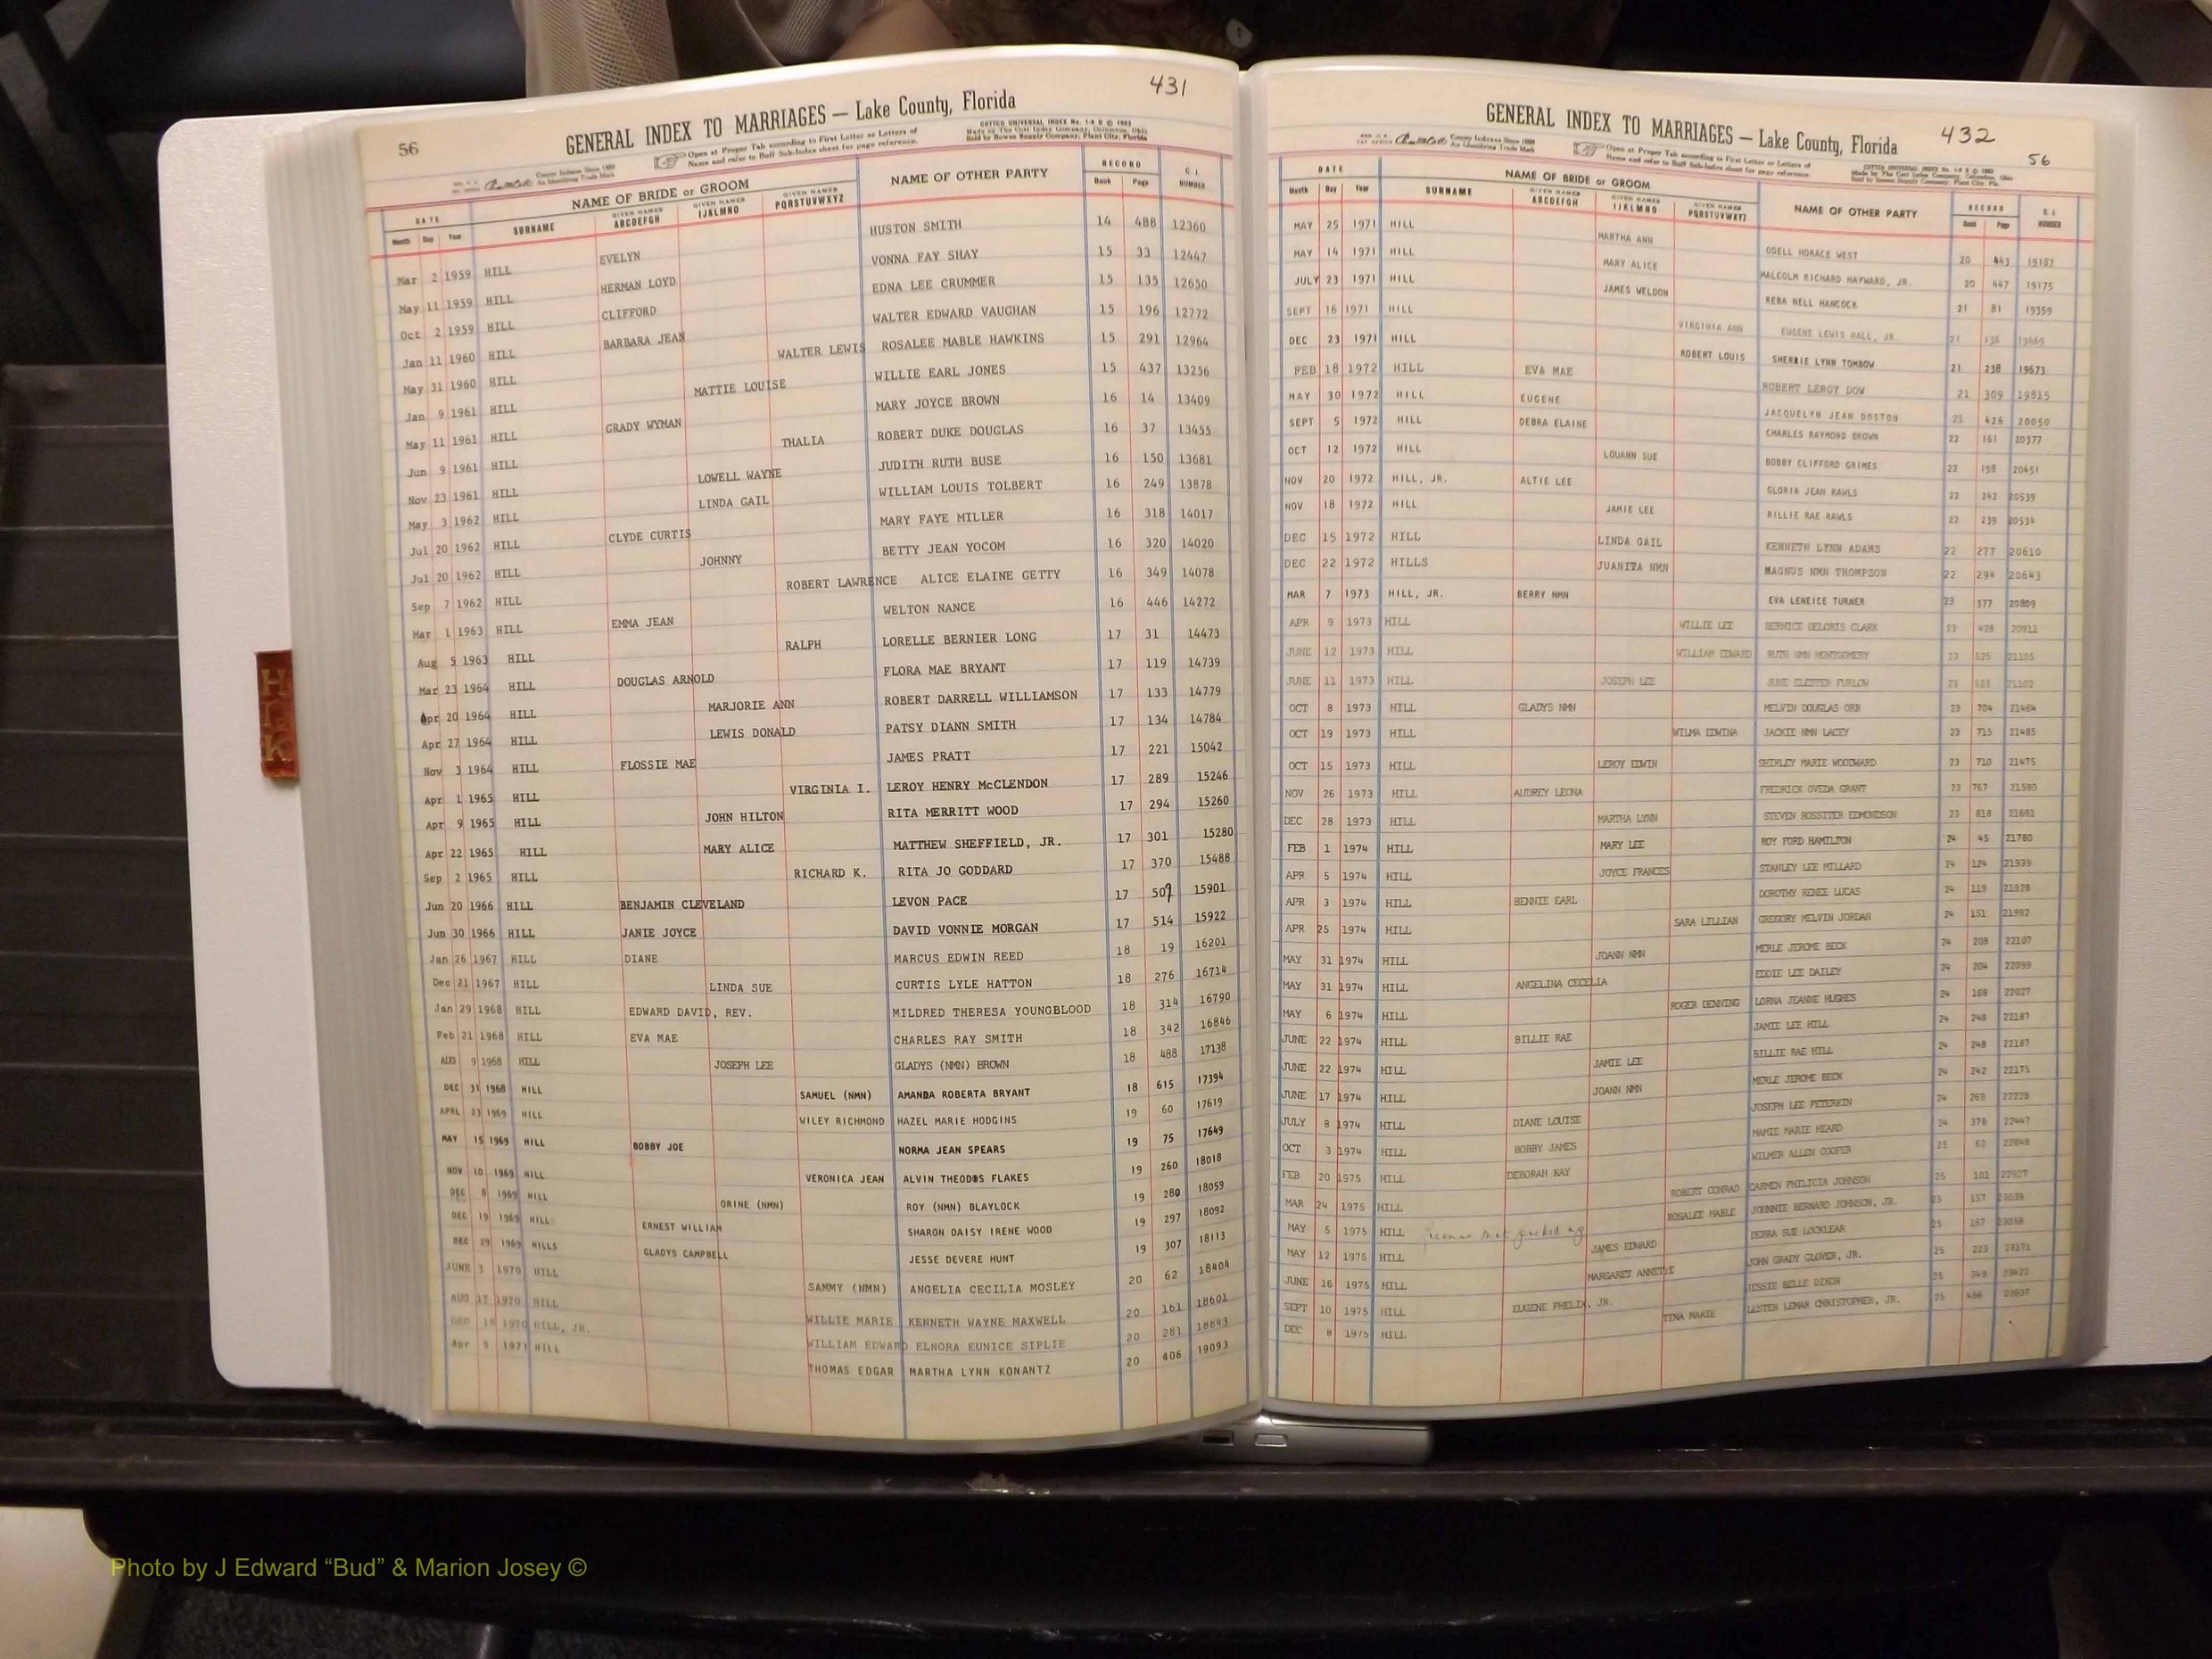 431
56
GENERAL INDEX TO MARRIAGES — Lake County, Florida
Open at Proper Tab according to First Letter or Letters of
Name and refer to Buff Sub-Index sheet for page reference.
DATE NAME OF BRIDE or GROOM NAME OF OTHER PARTY RECORD
Month Day Year SURNAME GIVEN NAMES ABCDEFGH GIVEN NAMES IJKLMNO GIVEN NAMES PQRSTUVWXYZ Book Page NUMBER
Mar 2 1959 HILL EVELYN HUSTON SMITH 14 488 12360
May 11 1959 HILL HERMAN LOYD VONNA FAY SHAY 15 33 12447
Oct 2 1959 HILL CLIFFORD EDNA LEE CRUMMER 15 135 12650
Jan 11 1960 HILL BARBARA JEAN WALTER EDWARD VAUGHAN 15 196 12772
May 31 1960 HILL WALTER LEWIS ROSALEE MABLE HAWKINS 15 291 12964
Jan 9 1961 HILL MATTIE LOUISE WILLIE EARL JONES 15 437 13256
May 11 1961 HILL GRADY WYMAN MARY JOYCE BROWN 16 14 13409
Jun 9 1961 HILL THALIA ROBERT DUKE DOUGLAS 16 37 13455
Nov 23 1961 HILL LOWELL WAYNE JUDITH RUTH BUSE 16 150 13681
May 3 1962 HILL LINDA GAIL WILLIAM LOUIS TOLBERT 16 249 13878
Jul 20 1962 HILL CLYDE CURTIS MARY FAYE MILLER 16 318 14017
Jul 20 1962 HILL JOHNNY BETTY JEAN YOCOM 16 320 14020
Sep 7 1962 HILL ROBERT LAWRENCE ALICE ELAINE GETTY 16 349 14078
Mar 1 1963 HILL EMMA JEAN WELTON NANCE 16 446 14272
Aug 5 1963 HILL RALPH LORELLE BERNIER LONG 17 31 14473
Mar 23 1964 HILL DOUGLAS ARNOLD FLORA MAE BRYANT 17 119 14739
Apr 20 1964 HILL MARJORIE ANN ROBERT DARRELL WILLIAMSON 17 133 14779
Apr 27 1964 HILL LEWIS DONALD PATSY DIANN SMITH 17 134 14784
Nov 3 1964 HILL FLOSSIE MAE JAMES PRATT 17 221 15042
Apr 1 1965 HILL VIRGINIA I. LEROY HENRY McCLENDON 17 289 15246
Apr 9 1965 HILL JOHN HILTON RITA MERRITT WOOD 17 294 15260
Apr 22 1965 HILL MARY ALICE MATTHEW SHEFFIELD, JR. 17 301 15280
Sep 2 1965 HILL RICHARD K. RITA JO GODDARD 17 370 15488
Jun 20 1966 HILL BENJAMIN CLEVELAND LEVON PACE 17 509 15901
Jun 30 1966 HILL JANIE JOYCE DAVID VONNIE MORGAN 17 514 15922
Jan 26 1967 HILL DIANE MARCUS EDWIN REED 18 19 16201
Dec 21 1967 HILL LINDA SUE CURTIS LYLE HATTON 18 276 16714
Jan 29 1968 HILL EDWARD DAVID, REV. MILDRED THERESA YOUNGBLOOD 18 314 16790
Feb 21 1968 HILL EVA MAE CHARLES RAY SMITH 18 342 16846
AUG 9 1968 HILL JOSEPH LEE GLADYS (NMN) BROWN 18 488 17138
DEC 31 1968 HILL SAMUEL (NMN) AMANDA ROBERTA BRYANT 18 615 17394
APRL 23 1969 HILL WILEY RICHMOND HAZEL MARIE HODGINS 19 60 17619
MAY 15 1969 HILL BOBBY JOE NORMA JEAN SPEARS 19 75 17649
NOV 10 1969 HILL VERONICA JEAN ALVIN THEODIS FLAKES 19 260 18018
DEC 8 1969 HILL ORINE (NMN) ROY (NMN) BLAYLOCK 19 280 18059
DEC 19 1969 HILL ERNEST WILLIAM SHARON DAISY IRENE WOOD 19 297 18092
DEC 29 1969 HILLS GLADYS CAMPBELL JESSE DEVERE HUNT 19 307 18113
JUNE 3 1970 HILL SAMMY (NMN) ANGELIA CECILIA MOSLEY 20 62 18404
AUG 17 1970 HILL WILLIE MARIE KENNETH WAYNE MAXWELL 20 161 18601
DEC 18 1970 HILL, JR. WILLIAM EDWARD ELNORA EUNICE SIPLIE 20 281 18843
Apr 5 1971 HILL THOMAS EDGAR MARTHA LYNN KONANTZ 20 406 19093
432
56
GENERAL INDEX TO MARRIAGES — Lake County, Florida
Open at Proper Tab according to First Letter or Letters of
Name and refer to Buff Sub-Index sheet for page reference.
DATE NAME OF BRIDE or GROOM NAME OF OTHER PARTY RECORD
Month Day Year SURNAME GIVEN NAMES ABCDEFGH GIVEN NAMES IJKLMNO GIVEN NAMES PQRSTUVWXYZ Book Page NUMBER
MAY 25 1971 HILL MARTHA ANN ODELL HORACE WEST 20 443 19187
MAY 14 1971 HILL MARY ALICE MALCOLM RICHARD HAYWARD, JR. 20 447 19175
JULY 23 1971 HILL JAMES WELDON REBA NELL HANCOCK 21 81 19359
SEPT 16 1971 HILL VIRGINIA ANN EUGENE LEWIS HALL, JR. 21 136 19469
DEC 23 1971 HILL ROBERT LOUIS SHERRIE LYNN TOMBOW 21 238 19673
FEB 18 1972 HILL EVA MAE ROBERT LEROY DOW 21 309 19815
MAY 30 1972 HILL EUGENE JACQUELYN JEAN DOSTON 21 426 20050
SEPT 5 1972 HILL DEBRA ELAINE CHARLES RAYMOND BROWN 22 161 20377
OCT 12 1972 HILL LOUANN SUE BOBBY CLIFFORD GRIMES 22 198 20451
NOV 20 1972 HILL, JR. ALTIE LEE GLORIA JEAN RAWLS 22 242 20539
NOV 18 1972 HILL JAMIE LEE BILLIE RAE RAWLS 22 239 20534
DEC 15 1972 HILL LINDA GAIL KENNETH LYNN ADAMS 22 277 20610
DEC 22 1972 HILLS JUANITA NMN MAGNUS NMN THOMPSON 22 294 20643
MAR 7 1973 HILL, JR. BERRY NMN EVA LENEICE TURNER 23 377 20809
APR 9 1973 HILL WILLIE LEE BERNICE DELORIS CLARK 23 428 20911
JUNE 12 1973 HILL WILLIAM EDWARD RUTH NMN MONTGOMERY 23 525 21105
JUNE 11 1973 HILL JOSEPH LEE JUNE ELESTER FURLOW 23 523 21102
OCT 8 1973 HILL GLADYS NMN MELVIN DOUGLAS ORR 23 704 21464
OCT 19 1973 HILL WILMA EDWINA JACKIE NMN LACEY 23 715 21485
OCT 15 1973 HILL LEROY EDWIN SHIRLEY MARIE WOODWARD 23 710 21475
NOV 26 1973 HILL AUDREY LEONA FREDRICK OVEDA GRANT 23 767 21590
DEC 28 1973 HILL MARTHA LYNN STEVEN ROSSITER EDMONDSON 23 818 21691
FEB 1 1974 HILL MARY LEE ROY FORD HAMILTON 24 45 21780
APR 5 1974 HILL JOYCE FRANCES STANLEY LEE MILLARD 24 124 21939
APR 3 1974 HILL BENNIE EARL DOROTHY RENEE LUCAS 24 119 21928
APR 25 1974 HILL SARA LILLIAN GREGORY MELVIN JORDAN 24 151 21992
MAY 31 1974 HILL JOANN NMN MERLE JEROME BECK 24 208 22107
MAY 31 1974 HILL ANGELINA CECELIA EDDIE LEE DAILEY 24 204 22099
MAY 6 1974 HILL ROGER DENNING LORNA JEANNE HUGHES 24 168 22027
JUNE 22 1974 HILL BILLIE RAE JAMIE LEE HILL 24 248 22187
JUNE 22 1974 HILL JAMIE LEE BILLIE RAE HILL 24 248 22187
JUNE 17 1974 HILL JOANN NMN MERLE JEROME BECK 24 242 22175
JULY 8 1974 HILL DIANE LOUISE JOSEPH LEE PETERKIN 24 269 22228
OCT 3 1974 HILL BOBBY JAMES MAMIE MARIE HEARD 24 378 22447
FEB 20 1975 HILL DEBORAH KAY WILMER ALLEN COOPER 25 62 22848
MAR 24 1975 HILL ROBERT CONRAD CARMEN PHILICIA JOHNSON 25 101 22927
MAY 5 1975 HILL ROSALEE MABLE JOHNNIE BERNARD JOHNSON, JR. 25 157 23039
MAY 12 1975 HILL JAMES EDWARD DEBRA SUE LOCKLEAR 25 167 23058
JUNE 16 1975 HILL MARGARET ANNETTE JOHN GRADY GLOVER, JR. 25 223 23171
SEPT 10 1975 HILL EUGENE PHELIX, JR. JESSIE BELLE DIXON 25 349 23422
DEC 8 1975 HILL TINA MARIE LESTER LEMAR CHRISTOPHER, JR. 25 456 23637
H
I
K
Photo by J Edward “Bud” & Marion Josey ©